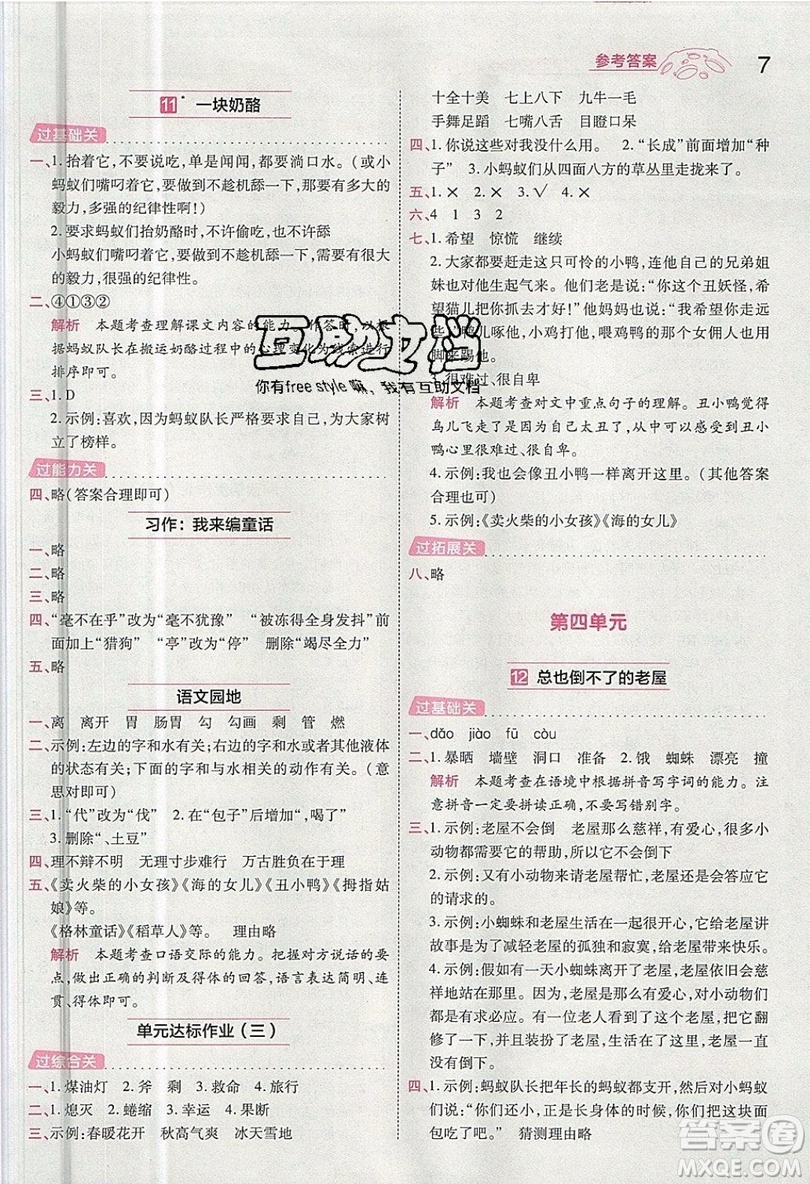 参考答案 7
11* 一块奶酪
过基础关
一、1.抬着它,不要说吃,单是闻闻,都要淌口水。(或小
蚂蚁们嘴叼着它,要做到不趁机舔一下,那要有多大的
毅力,多强的纪律性啊!)
2.要求蚂蚁们抬奶酪时,不许偷吃,也不许舔
小蚂蚁们嘴叼着它,要做到不趁机舔一下,要有很大的
毅力,很强的纪律性。
二、④①③②
解析 本题考查理解课文内容的能力。作答时,根
据蚂蚁队长在搬运奶酪过程中的心理变化为其进行
排序即可。
三、1.D
2.示例:喜欢,因为蚂蚁队长严格要求自己,为大家树
立了榜样。
过能力关
四、略(答案合理即可)
习作:我来编童话
一、略
二、略
三、略
四、“毫不在乎”改为“毫不犹豫” “被冻得全身发抖”前
面加上“猎狗” “亭”改为“停” 删除“竭尽全力”
五、略
语文园地
一、离 离开 胃 肠胃 勾 勾画 剩 管 燃
二、示例:左边的字和水有关;右边的字和水或其他液体
的状态有关。下面的字与水相关的动作有关。(意
思对即可)
三、1.“代”改为“伐” 2.在“包子”后增加“,喝了”
3.删除“、土豆”
四、理不辩不明 无理寸步难行 万古胜负在理中
五、《卖火柴的小女孩》《海的女儿》《丑小鸭》《拇指姑
娘》等。
《格林童话》《稻草人》等。 理由略
解析 本题考查口语交际的能力。能对方说话的意
思,做出正确的判断及得体的回答,语言表达简明、连
贯、得体即可。
单元达标作业(三)
过综合关
一、1.煤油灯 2.斧 剩 3.救命 4.旅行
二、1.熄灭 2.蜷缩 3.幸运 4.果断
三、示例:春暖花开 秋高气爽 冰天雪地
十全十美 七上八下 九牛一毛
手舞足蹈 七嘴八舌 目瞪口呆
四、1.你说这些对我没什么用。 2.“长成”前面增加“种
子” 3.小蚂蚁们从四面八方的草丛里走拢来了。
五、1.× 2.× 3.√ 4.×
六、4 1 3 2
七、1.希望 惊慌 继续
2.大家都要赶走这只可怜的小鸭,连他自己的兄弟姐
妹也对他生起气来。他们老是说:“你这个丑妖怪,希
望猫儿把你抓去才好!”他妈妈也说:“我希望你走远
些!”鸭儿啄他,小鸡打他,喂鸡鸭的那个女佣人也用
脚来踢他。
3.很难过、很自卑
解析 本题考查对文中重点句子的理解。丑小鸭觉得
鸟儿飞走了是因为自己太丑了,从中体会到当时丑小
鸭心里很难过、很自卑。
4.示例:我也会像丑小鸭一样离开这里。(其他答案
合理也可)
5.示例:《卖火柴的小女孩》《海的女儿》
过拓展关
八、略
第四单元
12 总也倒不了的老屋
过基础关
一、dǎo jiào fū còu
二、1.暴晒 墙壁 洞口 准备 2.饿 蜘蛛 漂亮 撞
解析 本题考查在语境中根据拼音写字词的能力。要
注意拼音一定要读准确,不要写错别字。
三、1.示例:老屋不会倒 老屋那么慈祥,有爱心,很多小
动物都需要它的帮助,所以它不会倒下
2.示例:老屋那么慈祥、有爱心,老屋一定还会答应它
的请求的。
3.示例:小蜘蛛和老屋生活在一起很快乐,小蜘蛛讲
故事是为了减轻老屋的孤独和寂寞,真是有爱心。
4.示例:假如有一天小蜘蛛离开了老屋,老屋还会慈
祥地站在那里,等着更多需要帮助的小动物们,它们
一个又一个地来到老屋那里,把这个老屋的门窗翻了
出来,并且装修了这个老屋,老屋也不会再孤独、寂
寞,它会和小动物一起快乐地生活下去。
四、示例:蚂蚁队长把年长的蚂蚁都支开,然后对小蚂蚁们
说:“你们还小,正是长身体的时候,所以你们把这块面
包吃了吧。” 猜测理由略
互助文档
你有free style嘛,我有互助文档
答案圈
MXQE.COM